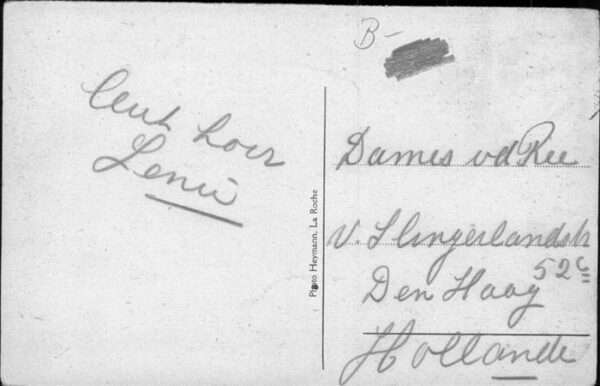 B-
Lenie
Photo Heymann, La Roche
Dames vd Ree
v. Slingerlandstr
52c
Den Haag
Hollande